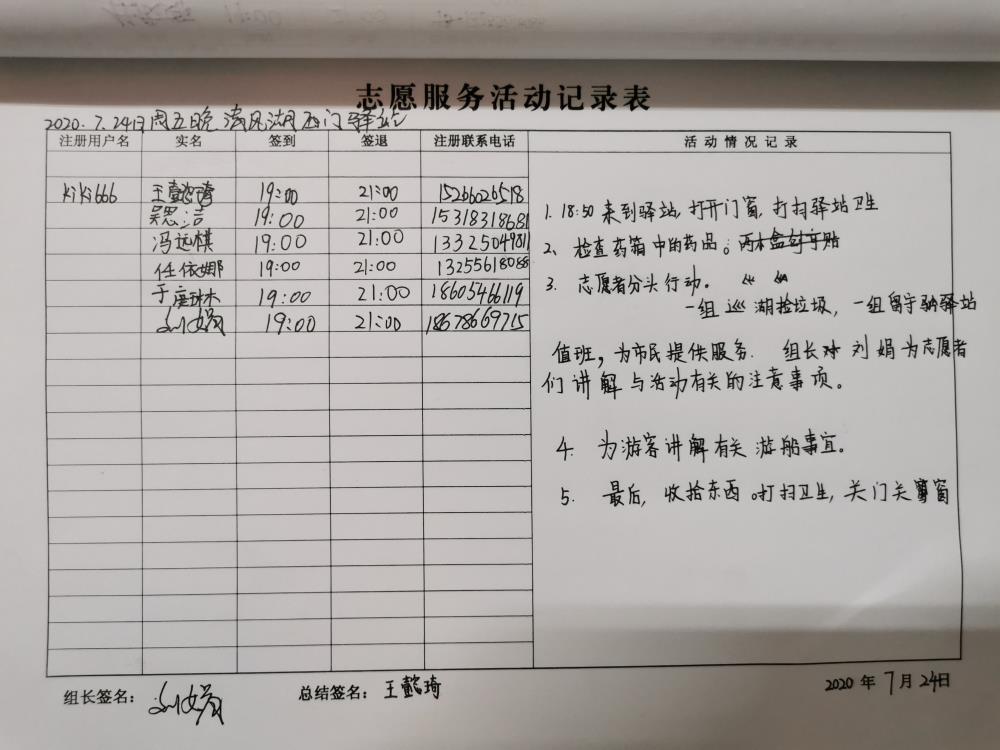 志愿服务活动记录表
2020.7.24日周五晚清风湖西门驿站
注册用户名 实名 签到 签退 注册联系电话 活动情况记录
kiki666 王懿琦 19:00 21:00 15266026518
吴思洁 19:00 21:00 15318318681
冯远棋 19:00 21:00 13325049811
任依娜 19:00 21:00 13255618088
于 19:00 21:00 18605466119
刘娟 19:00 21:00 18678669715
1. 18:50 来到驿站,打开门窗,打扫驿站卫生
2、检查药箱中的药品。
3. 志愿者分头行动。
一组巡湖捡垃圾,一组留守驿站
值班,为市民提供服务. 组长刘娟为志愿者
们讲解与活动有关的注意事项。
4. 为游客讲解有关游船事宜。
5. 最后,收拾东西。打扫卫生,关门关窗
组长签名: 刘娟 总结签名: 王懿琦 2020 年 7 月 24日